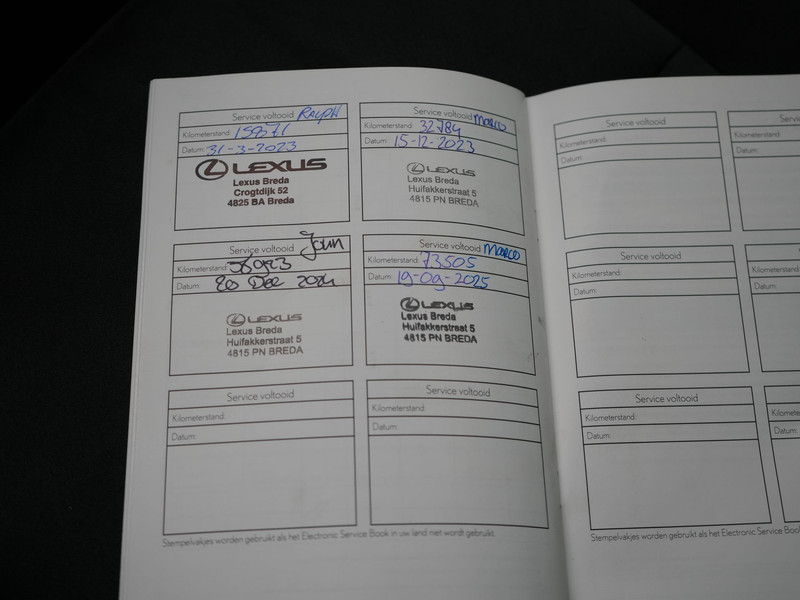 Service voltooid Ralph
Kilometerstand: 15971
Datum: 31-3-2023
LEXUS
Lexus Breda
Crogtdijk 52
4825 BA Breda
Service voltooid Marco
Kilometerstand: 32784
Datum: 15-12-2023
LEXUS
Lexus Breda
Huifakkerstraat 5
4815 PN BREDA
Service voltooid John
Kilometerstand:
Datum: 20 Dec 2024
LEXUS
Lexus Breda
Huifakkerstraat 5
4815 PN BREDA
Service voltooid Marco
Kilometerstand: 73505
Datum: 19-09-2025
LEXUS
Lexus Breda
Huifakkerstraat 5
4815 PN BREDA
Service voltooid
Kilometerstand:
Datum:
Service voltooid
Kilometerstand:
Datum:
Stempelvakjes worden gebruikt als het Electronic Service Book in uw land niet wordt gebruikt.
Service voltooid
Kilometerstand:
Datum:
Kilometerstand:
Datum:
Service voltooid
Kilometerstand:
Datum:
Kilometerstand:
Datum:
Service voltooid
Kilometerstand:
Datum:
Kilometerstand
Datum:
Stempelvakjes worden gebruikt als het Electronic Service Book